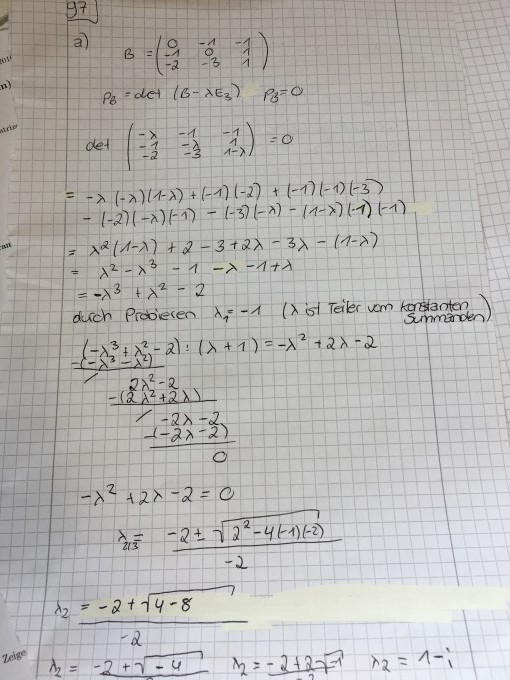 97
a) B = ( 0 -1 -1
-1 0 1
-2 -3 1 )
PB = det (B - λE3) PB = 0
det ( -λ -1 -1
-1 -λ 1
-2 -3 1-λ ) = 0
= -λ(-λ)(1-λ) + (-1)(-2) + (-1)(-1)(-3)
- (-2)(-λ)(-1) - (-3)(-λ) - (1-λ)(-1)(-1)
= λ²(1-λ) + 2 - 3 + 2λ - 3λ - (1-λ)
= λ² - λ³ - 1 - λ - 1 + λ
= -λ³ + λ² - 2
durch Probieren λ1 = -1 (λ ist Teiler vom konstanten
Summanden)
(-λ³ + λ² - 2) : (λ + 1) = -λ² + 2λ - 2
-(-λ³ - λ²)
2λ² - 2
-(2λ² + 2λ)
-2λ - 2
(-2λ - 2)
0
-λ² + 2λ - 2 = 0
λ2/3 = -2 ± √2² - 4(-1)(-2)
-2
λ2 = -2 + √4 - 8
-2
Zeige
λ2 = -2 + √-4 λ2 = -2 + 2√-1 λ2 = 1 - i